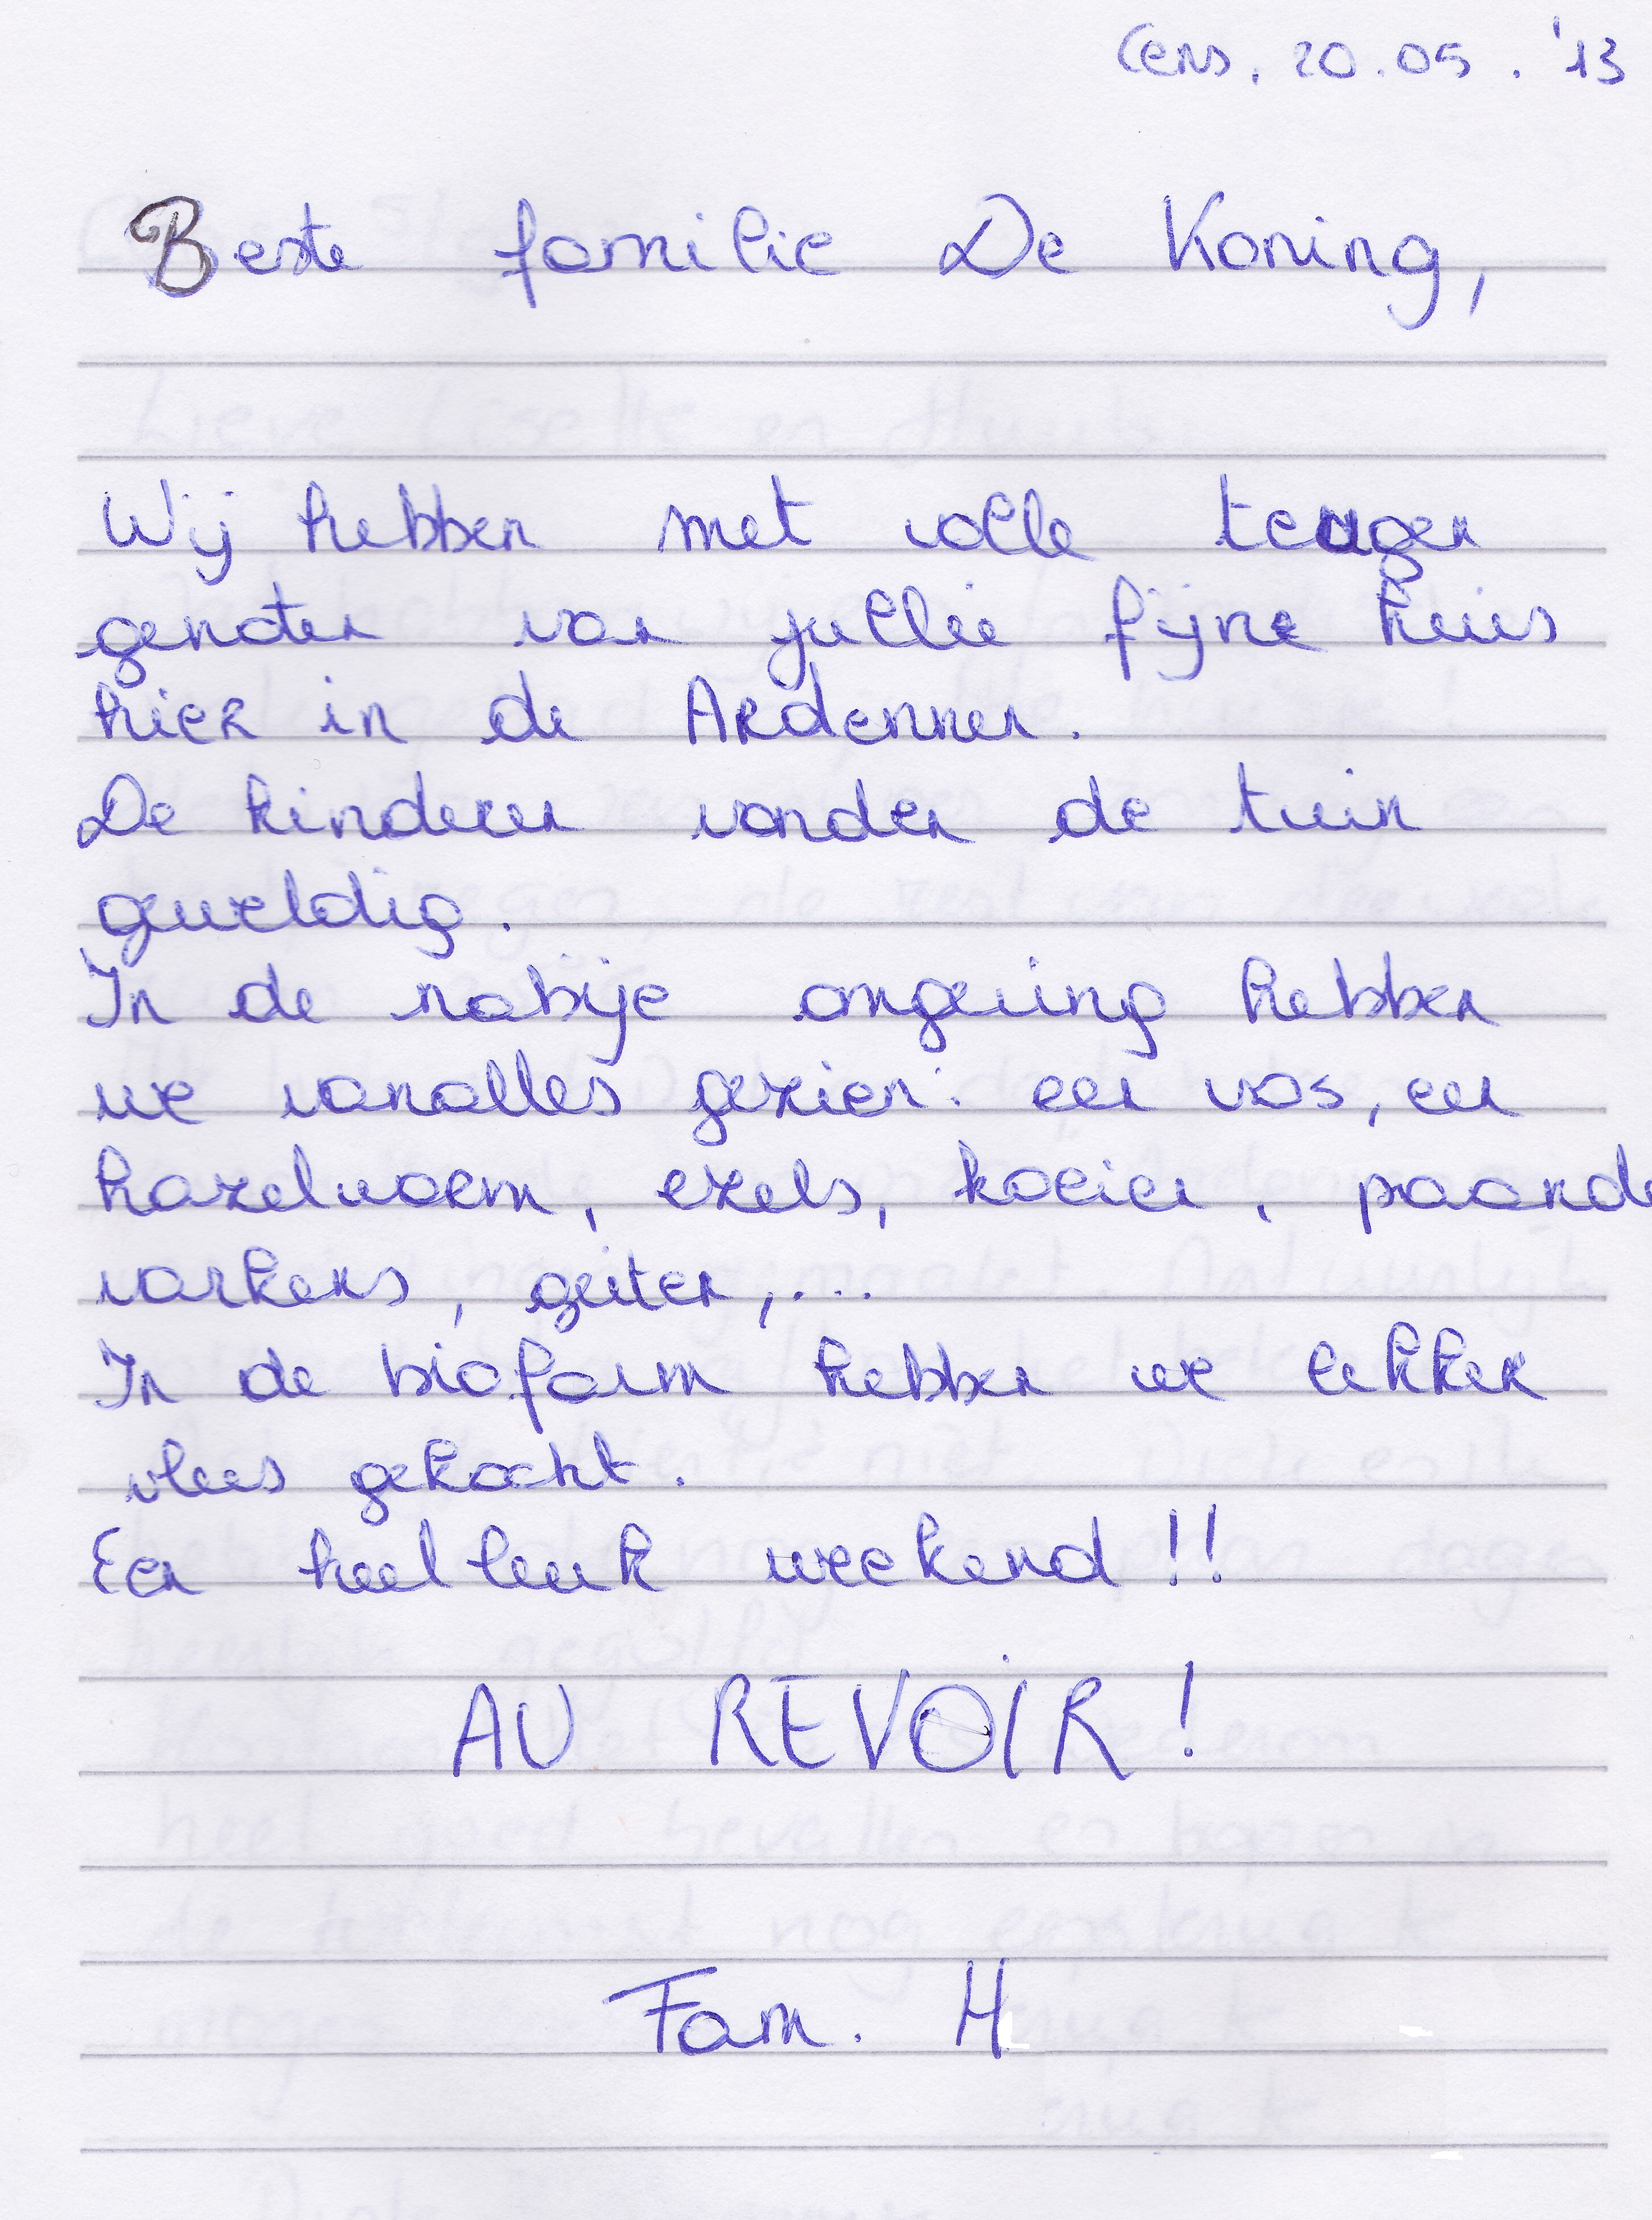 Cens, 20.05.'13
Beste familie De Koning,
Wij hebben met volle teugen
genoten van jullie fijne huis
hier in de Ardennen.
De kinderen vonden de tuin
geweldig.
In de nabije omgeving hebben
we vanalles gezien: een vos, een
hazelworm, ezels, koeien, paarde
varkens, geiten,...
In de biofarm hebben we lekker
vlees gekocht.
Een heel leuk weekend!!
AU REVOIR!
Fam. H